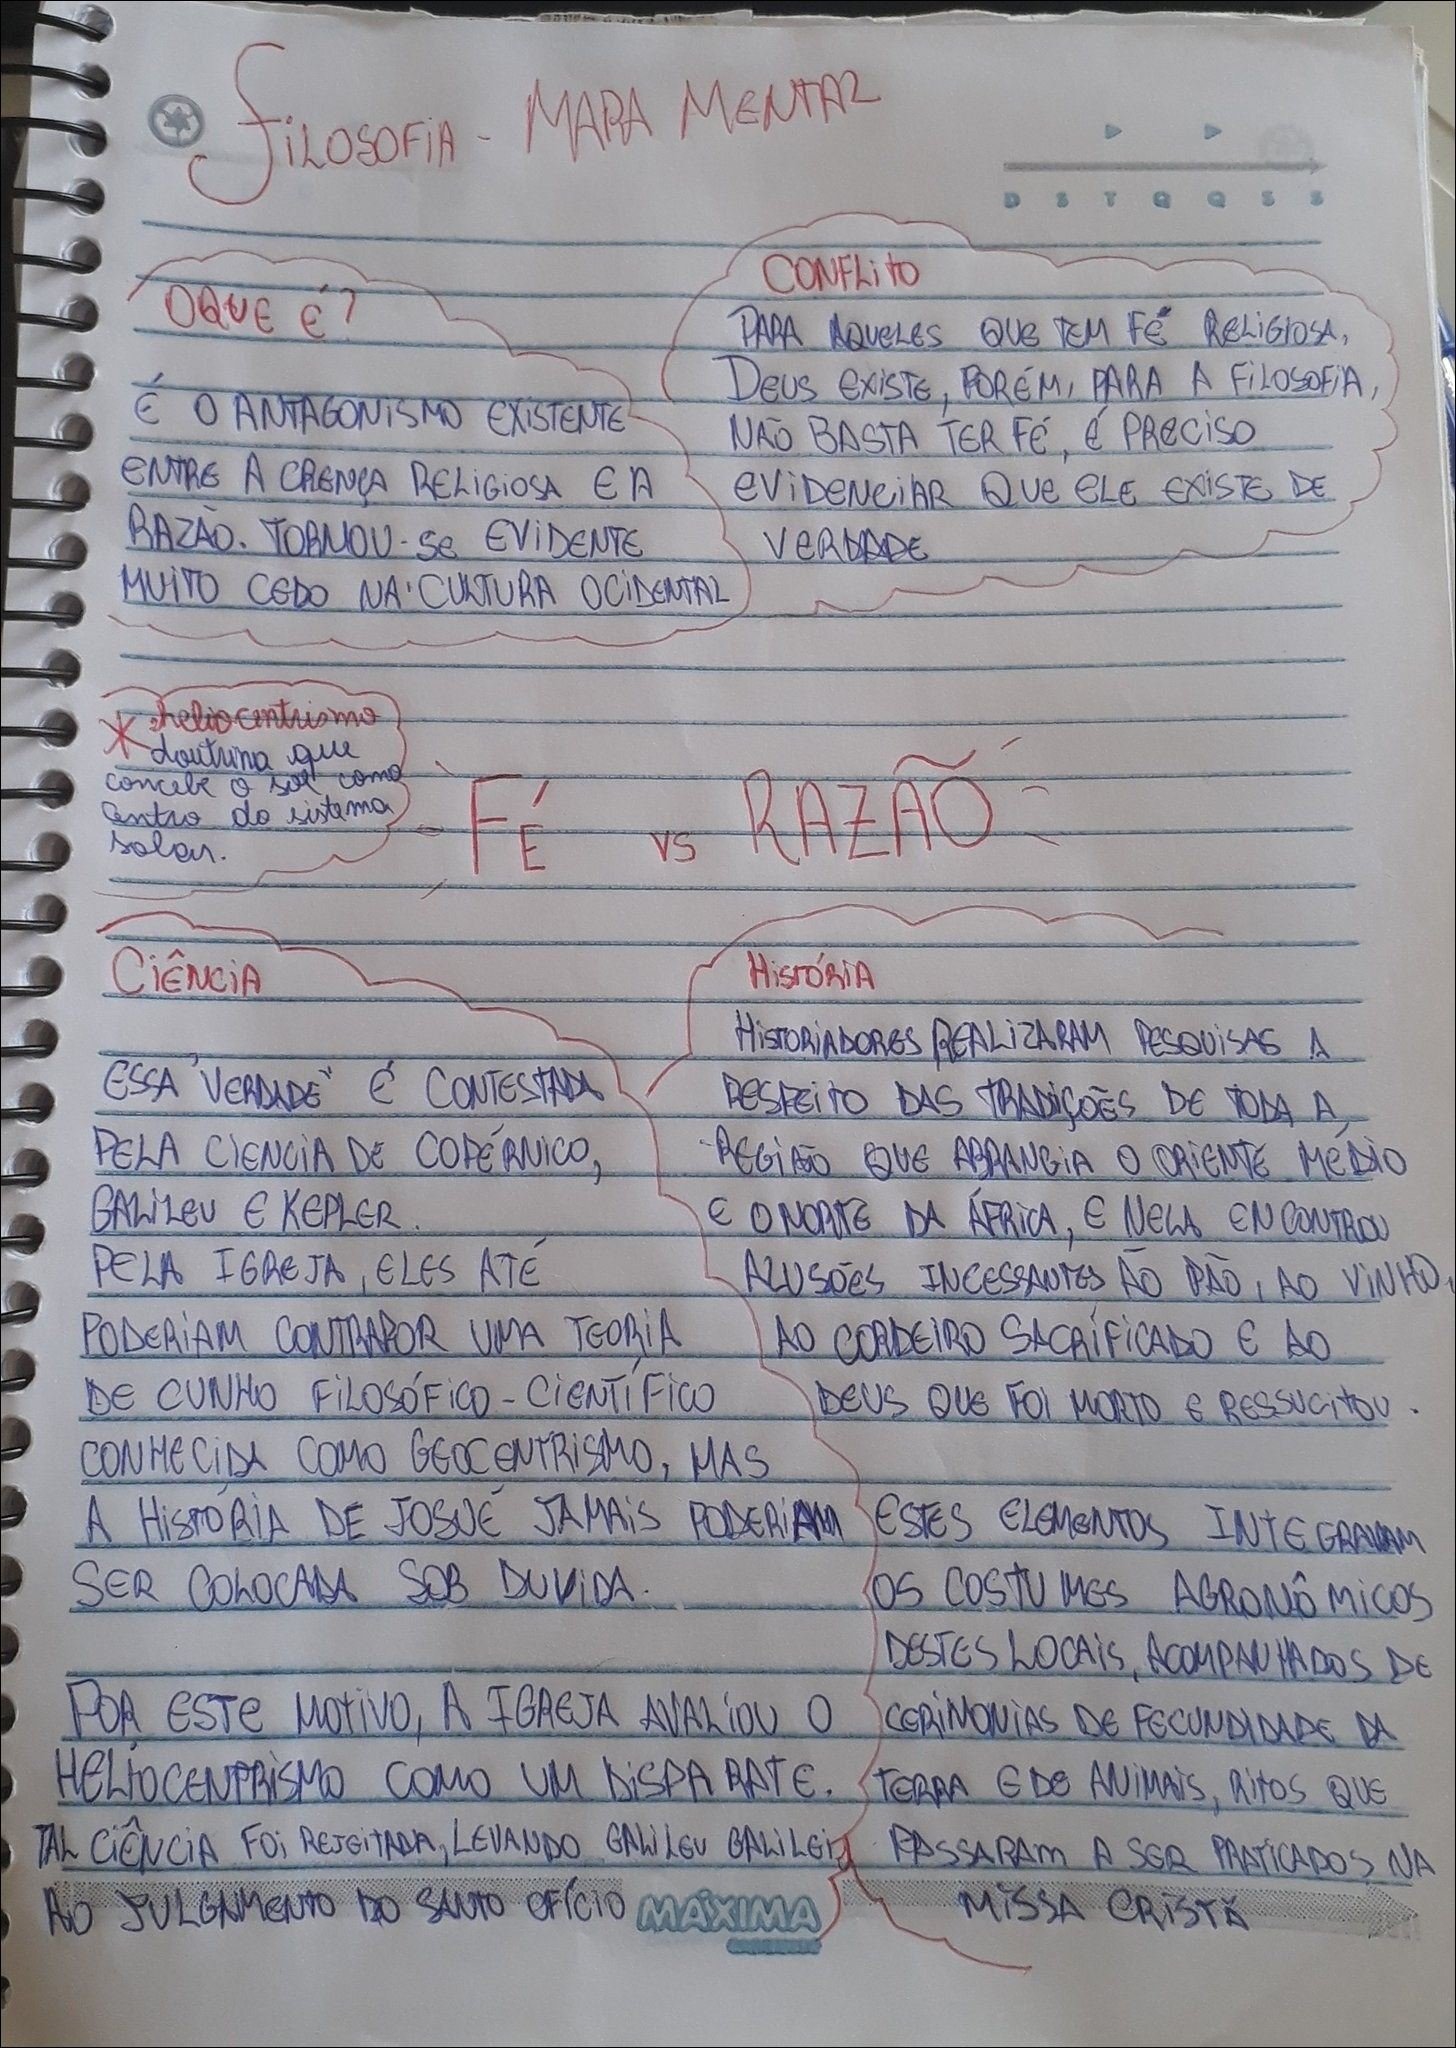 Filosofia - Mapa Mental
D S T Q Q S S
O que é?
É o antagonismo existente
entre a crença religiosa e a
razão. Tornou-se evidente
muito cedo na cultura ocidental
Conflito
Para aqueles que tem fé religiosa,
Deus existe, porém, para a filosofia,
não basta ter fé, é preciso
evidenciar que ele existe de
verdade
* heliocentrismo
doutrina que
concebe o sol como
centro do sistema
solar.
Fé vs Razão
Ciência
Essa "verdade" é contestada
pela ciencia de Copérnico,
Galileu e Kepler.
Pela igreja, eles até
poderiam contrapor uma teoria
de cunho filosófico-científico
conhecida como geocentrismo, mas
a história de Josué jamais poderiam
ser colocada sob duvida.
Por este motivo, a igreja avaliou o
heliocentrismo como um disparate.
Tal ciência foi rejeitada, levando Galileu Galilei
ao julgamento do Santo Ofício
História
Historiadores realizaram pesquisas a
respeito das tradições de toda a
região que abrangia o Oriente Médio
e o norte da África, e nela encontrou
alusões incessantes ão pão, ao vinho,
ao cordeiro sacrificado e ao
Deus que foi morto e ressucitou.
Estes elementos integravam
os costumes agronômicos
destes locais, acompanhados de
cerimonias de fecundidade da
terra e de animais, ritos que
passaram a ser praticados na
missa cristã
MÁXIMA